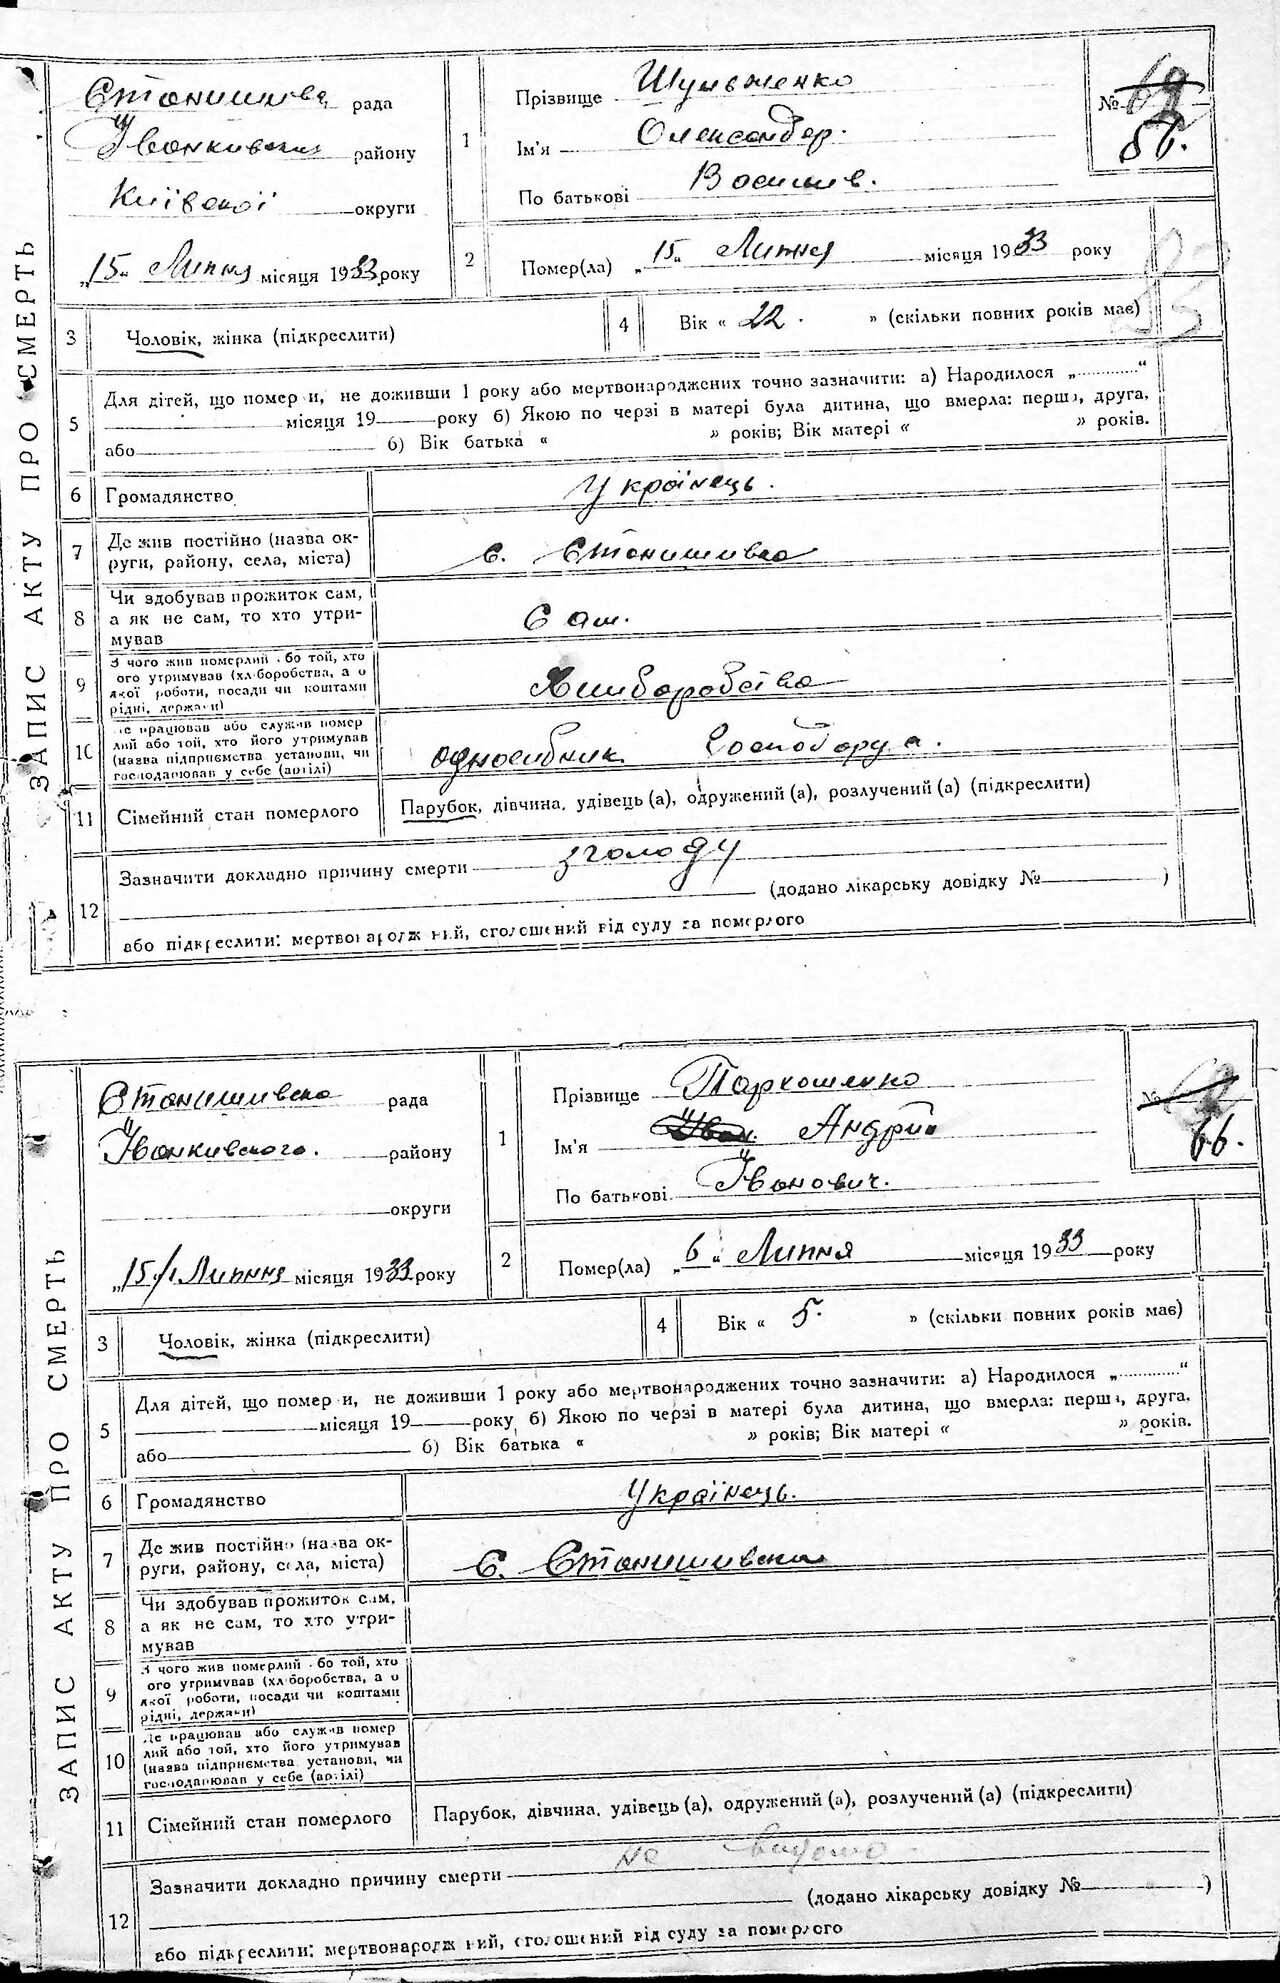 ЗАПИС АКТУ ПРО СМЕРТЬ
Станишівс рада
Іванківськ району
Київської округи
„15" Липня місяця 1933 року
1
Прізвище Шульженко
Ім'я Олександер.
По батькові Василів.
№ 69
2
Помер(ла) „15" Липня місяця 1933 року
3 Чоловік, жінка (підкреслити)
4 Вік « 22. » (скільки повних років має)
5 Для дітей, що помер и, не доживши 1 року або мертвонароджених точно зазначити: а) Народилося „ “
місяця 19 року б) Якою по черзі в матері була дитина, що вмерла: перша, друга,
або 6) Вік батька « » років; Вік матері « » років.
6 Громадянство Українець.
7 Де жив постійно (назва ок-
руги, району, села, міста) с. Станишивка
8 Чи здобував прожиток сам,
а як не сам, то хто утри-
мував Сам.
9 З чого жив померлий бо той, хто
ого утримував (хл боробства, а о
якої роботи, посади чи коштами
рідні, держави) Хлиборобства
10 е працював або служив помер
лий або той, хто його утримував
(назва підприємства установи, чи
господарював у себе (артілі) односибник Господору а.
11 Сімейний стан померлого Парубок, дівчина, удівець (а), одружений (а), розлучений (а) (підкреслити)
12 Зазначити докладно причину смерти з голоду
(додано лікарську довідку № )
або підкреслити: мертвонародж ний, оголошений від суду за померлого
ЗАПИС АКТУ ПРО СМЕРТЬ
Станишивска рада
Іванкивского. району
округи
„15" Липня місяця 1933 року
1
Прізвище Пархоменко
Ім'я Іван. Андрий
По батькові Іванович.
№
66.
2
Помер(ла) „6" Липня місяця 1933 року
3 Чоловік, жінка (підкреслити)
4 Вік « 5. » (скільки повних років має)
5 Для дітей, що помер и, не доживши 1 року або мертвонароджених точно зазначити: а) Народилося „ “
місяця 19 року б) Якою по черзі в матері була дитина, що вмерла: перша, друга.
або 6) Вік батька « » років; Вік матері « » років.
6 Громадянство Українець.
7 Де жив постійно (назва ок-
руги, району, села, міста) с. Станишивка
8 Чи здобував прожиток сам,
а як не сам, то хто утри-
мував
9 З чого жив померлий бо той, хто
ого утримував (хл боробства, а о
якої роботи, посади чи коштами
рідні, держави)
10 Де працював або служив помер
лий або той, хто його утримував
(назва підприємства установи, чи
господарював у себе (артілі)
11 Сімейний стан померлого Парубок, дівчина, удівець (а), одружений (а), розлучений (а) (підкреслити)
12 Зазначити докладно причину смерти не видомо
(додано лікарську довідку № )
або підкреслити: мертвонародж ний, оголошений від суду за померлого